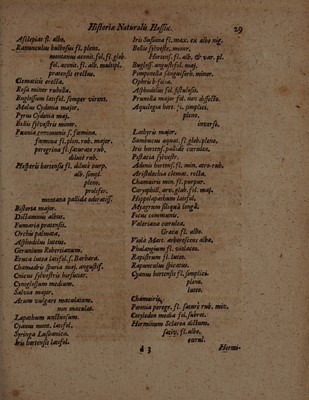 Historiæ Naturalis Hassiæ. 29
Asclepias fl. albo.
Ranunculus bulbosus fl. pleno.
montanus aconit. fol. fl. glob.
fol. aconit. fl. alb. multipl.
pratensis erectus.
Clematitis erecta.
Rosa minor rubella.
Buglossum latifol. semper virens.
Malus Cydonia major.
Pyrus Cydonia maj.
Bellis sylvestris minor.
Pæonia communis s. fœmina.
fœmina fl. plen. rub. major.
peregrina fl. saturate rub.
dilutè rub.
Hesperis hortensis fl. dilutè purp.
alb. simpl.
pleno.
prolifer.
montana pallida odoratiss.
Bistorta major.
Dictamnus albus.
Fumaria pratensis.
Orchis palmata.
Asphodelus luteus.
Geranium Robertianum.
Eruca lutea latifol. s. Barbara.
Chamædris spuria maj. angustif.
Cnicus sylvestris hirsutior.
Cynoglossum medium.
Salvia major.
Arum vulgare maculatum.
non maculat.
Lapathum unctuosum.
Cyanus mont. latifol.
Syringa Lusitanica.
Iris hortensis latifol.
Iris Susiana fl. max. ex albo nig.
Bellis sylvestr. minor.
Hortens. fl. alb. & var. pl.
Bugloss. angustifol. maj.
Pimpinella sanguisorb. minor.
Ophris bifolia.
Asphodelus fol. fistulosis.
Prunella major fol. non dissecto.
Aquilegia hort. fl. simplici.
pleno.
inverso.
Lathyris major.
Sambucus aquat. fl. glob. pleno.
Iris hortens. pallidè cærulea.
Pistacia sylvestr.
Adonis hortens. fl. min. atro-rub.
Aristolochia clemat. recta.
Chamæiris min. fl. purpur.
Caryophill. arv. glab. fol. maj.
Hippolapathum latifol.
Myagrum siliquâ longâ.
Ficus communis.
Valeriana cærulea.
Græca fl. albo.
Viola Mart. arborescens alba,
Phalangium fl. violaceo.
Rapistrum fl. luteo.
Ranunculus spicatus.
Cyanus hortensis fl. simplici.
pleno.
luteo.
Chamæiris,
Pæonia peregr. fl. saturè rub. min.
Corylus media fol. subrot.
Horminum Sclarea dictum.
sativ. fl. albo.
cærul.
d 3 Hormi-